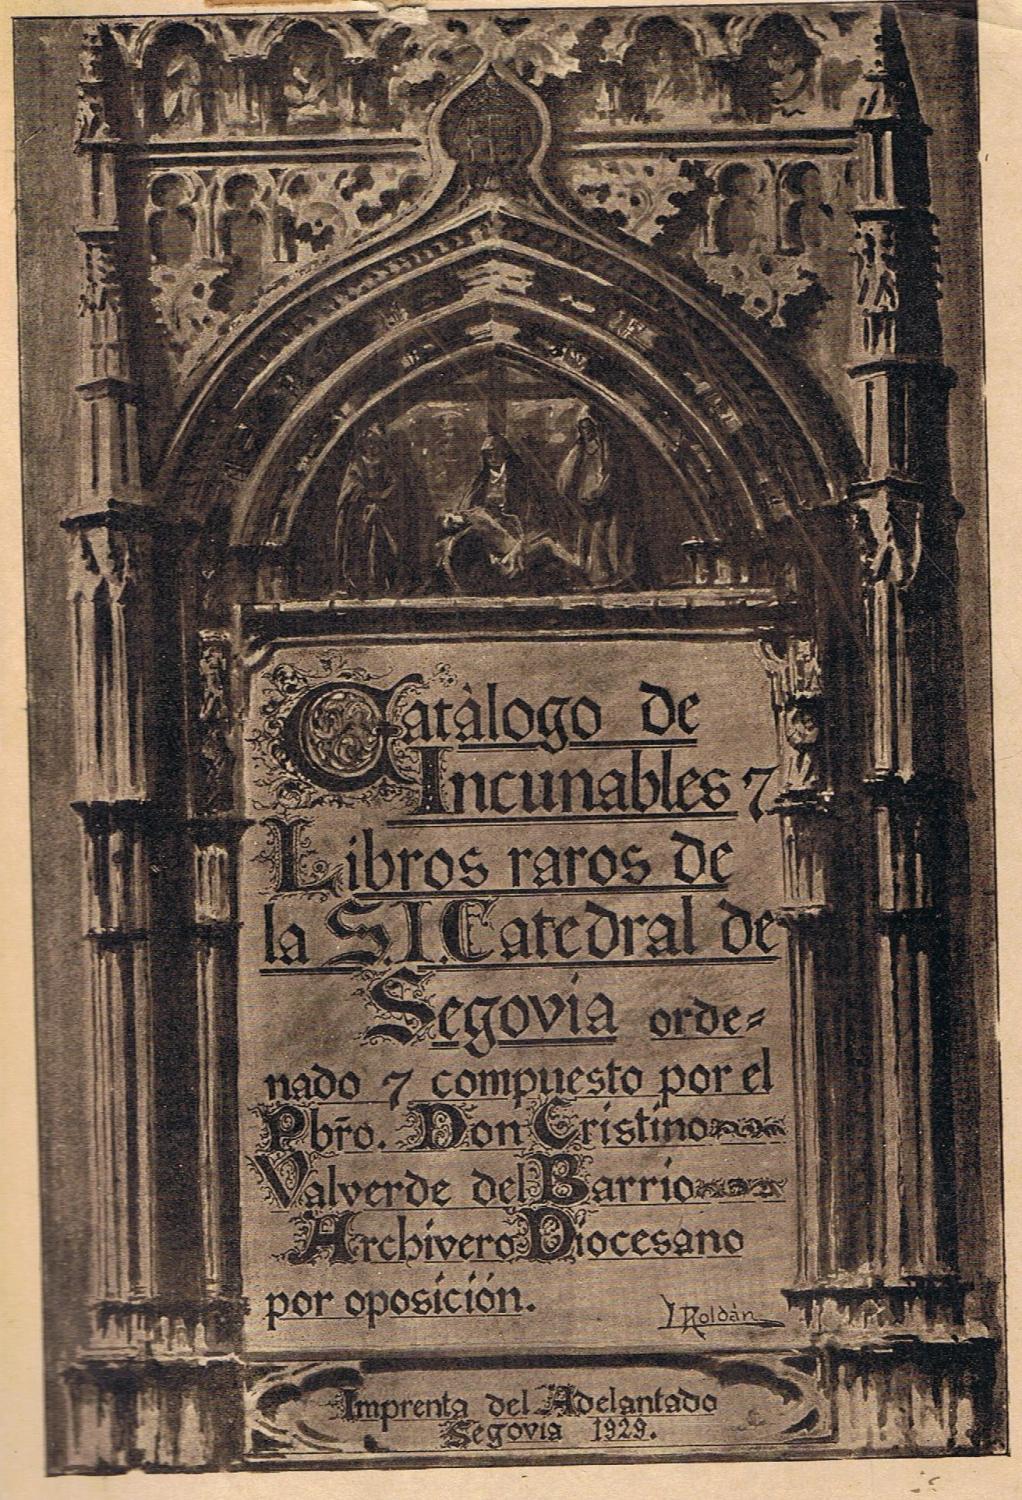 Catàlogo de
Incunables 7
Libros raros de
la S.I. Catedral de
Segovia orde=
nado 7 compuesto por el
Pbr̃o. Don Cristino
Valverde del Barrio
Archivero Diocesano
por oposición.
Y Roldán
Imprenta del Adelantado
Segovia 1929.